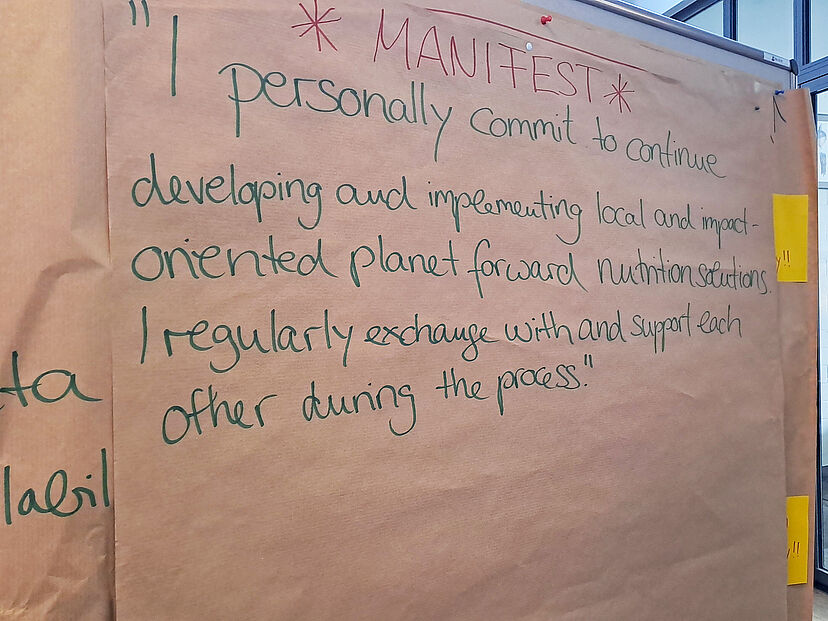 * MANIFEST *
"I personally commit to continue
developing and implementing local and impact-
oriented planet forward nutrition solutions.
I regularly exchange with and support each
other during the process."
ta
labil
y!!
y!!